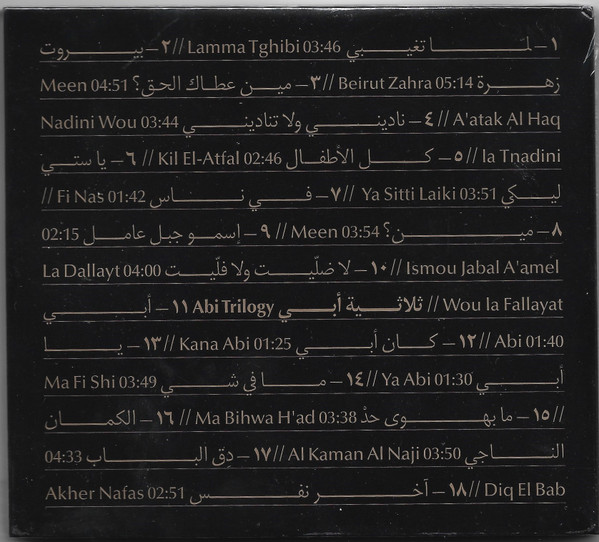 ١– لمّا تغيبي Lamma Tghibi 03:46 // ٢– بيروت
زهرة Beirut Zahra 05:14 // ٣– مين عطاك الحق؟ Meen 04:51
A'atak Al Haq // ٤– ناديني ولا تناديني Nadini Wou 03:44
la Tnadini // ٥– كل الأطفال Kil El-Atfal 02:46 // ٦– يا ستي
ليكي Ya Sitti Laiki 03:51 // ٧– في ناس Fi Nas 01:42 //
٨– مين؟ Meen 03:54 // ٩– إسمو جبل عامل 02:15
Ismou Jabal A'amel // ١٠– لا ضلّيت ولا فلّيت La Dallayt 04:00
Wou la Fallayat // ثلاثية أبي Abi Trilogy ١١ – أبي
Abi 01:40 // ١٢– كان أبي Kana Abi 01:25 // ١٣– يا
أبي Ya Abi 01:30 // ١٤– ما في شي Ma Fi Shi 03:49
// ١٥– ما بهوى حدٌ Ma Bihwa H'ad 03:38 // ١٦– الكمان
الناجي Al Kaman Al Naji 03:50 // ١٧– دِق الباب 04:33
Diq El Bab // ١٨– آخر نفس Akher Nafas 02:51